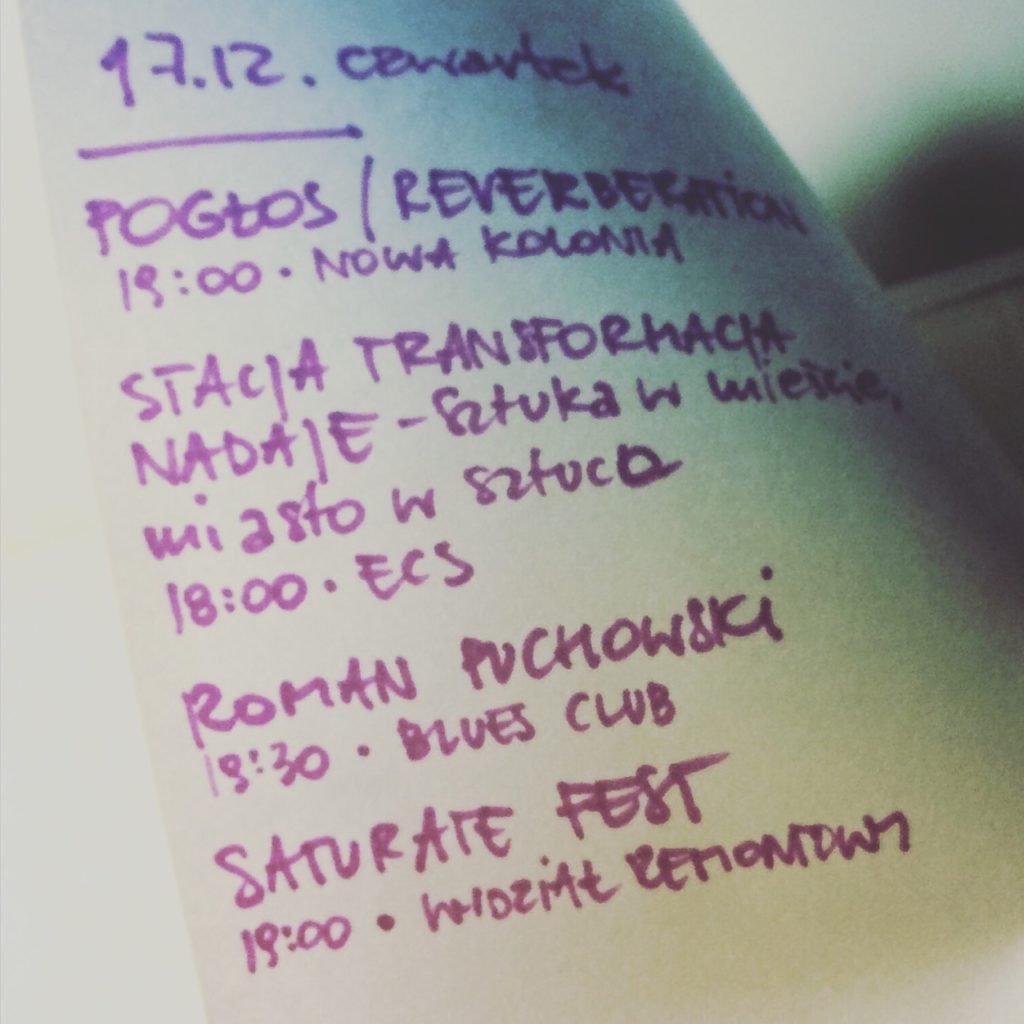 17.12. czwartek
POGŁOS / REVERBERATION
19:00 • NOWA KOLONIA
STACJA TRANSFORMACJA
NADAJE - sztuka w mieście,
miasto w sztuce
18:00 • ECS
ROMAN PUCHOWSKI
19:30 • BLUES CLUB
SATURATE FEST
19:00 • WYDZIAŁ REMONTOWY